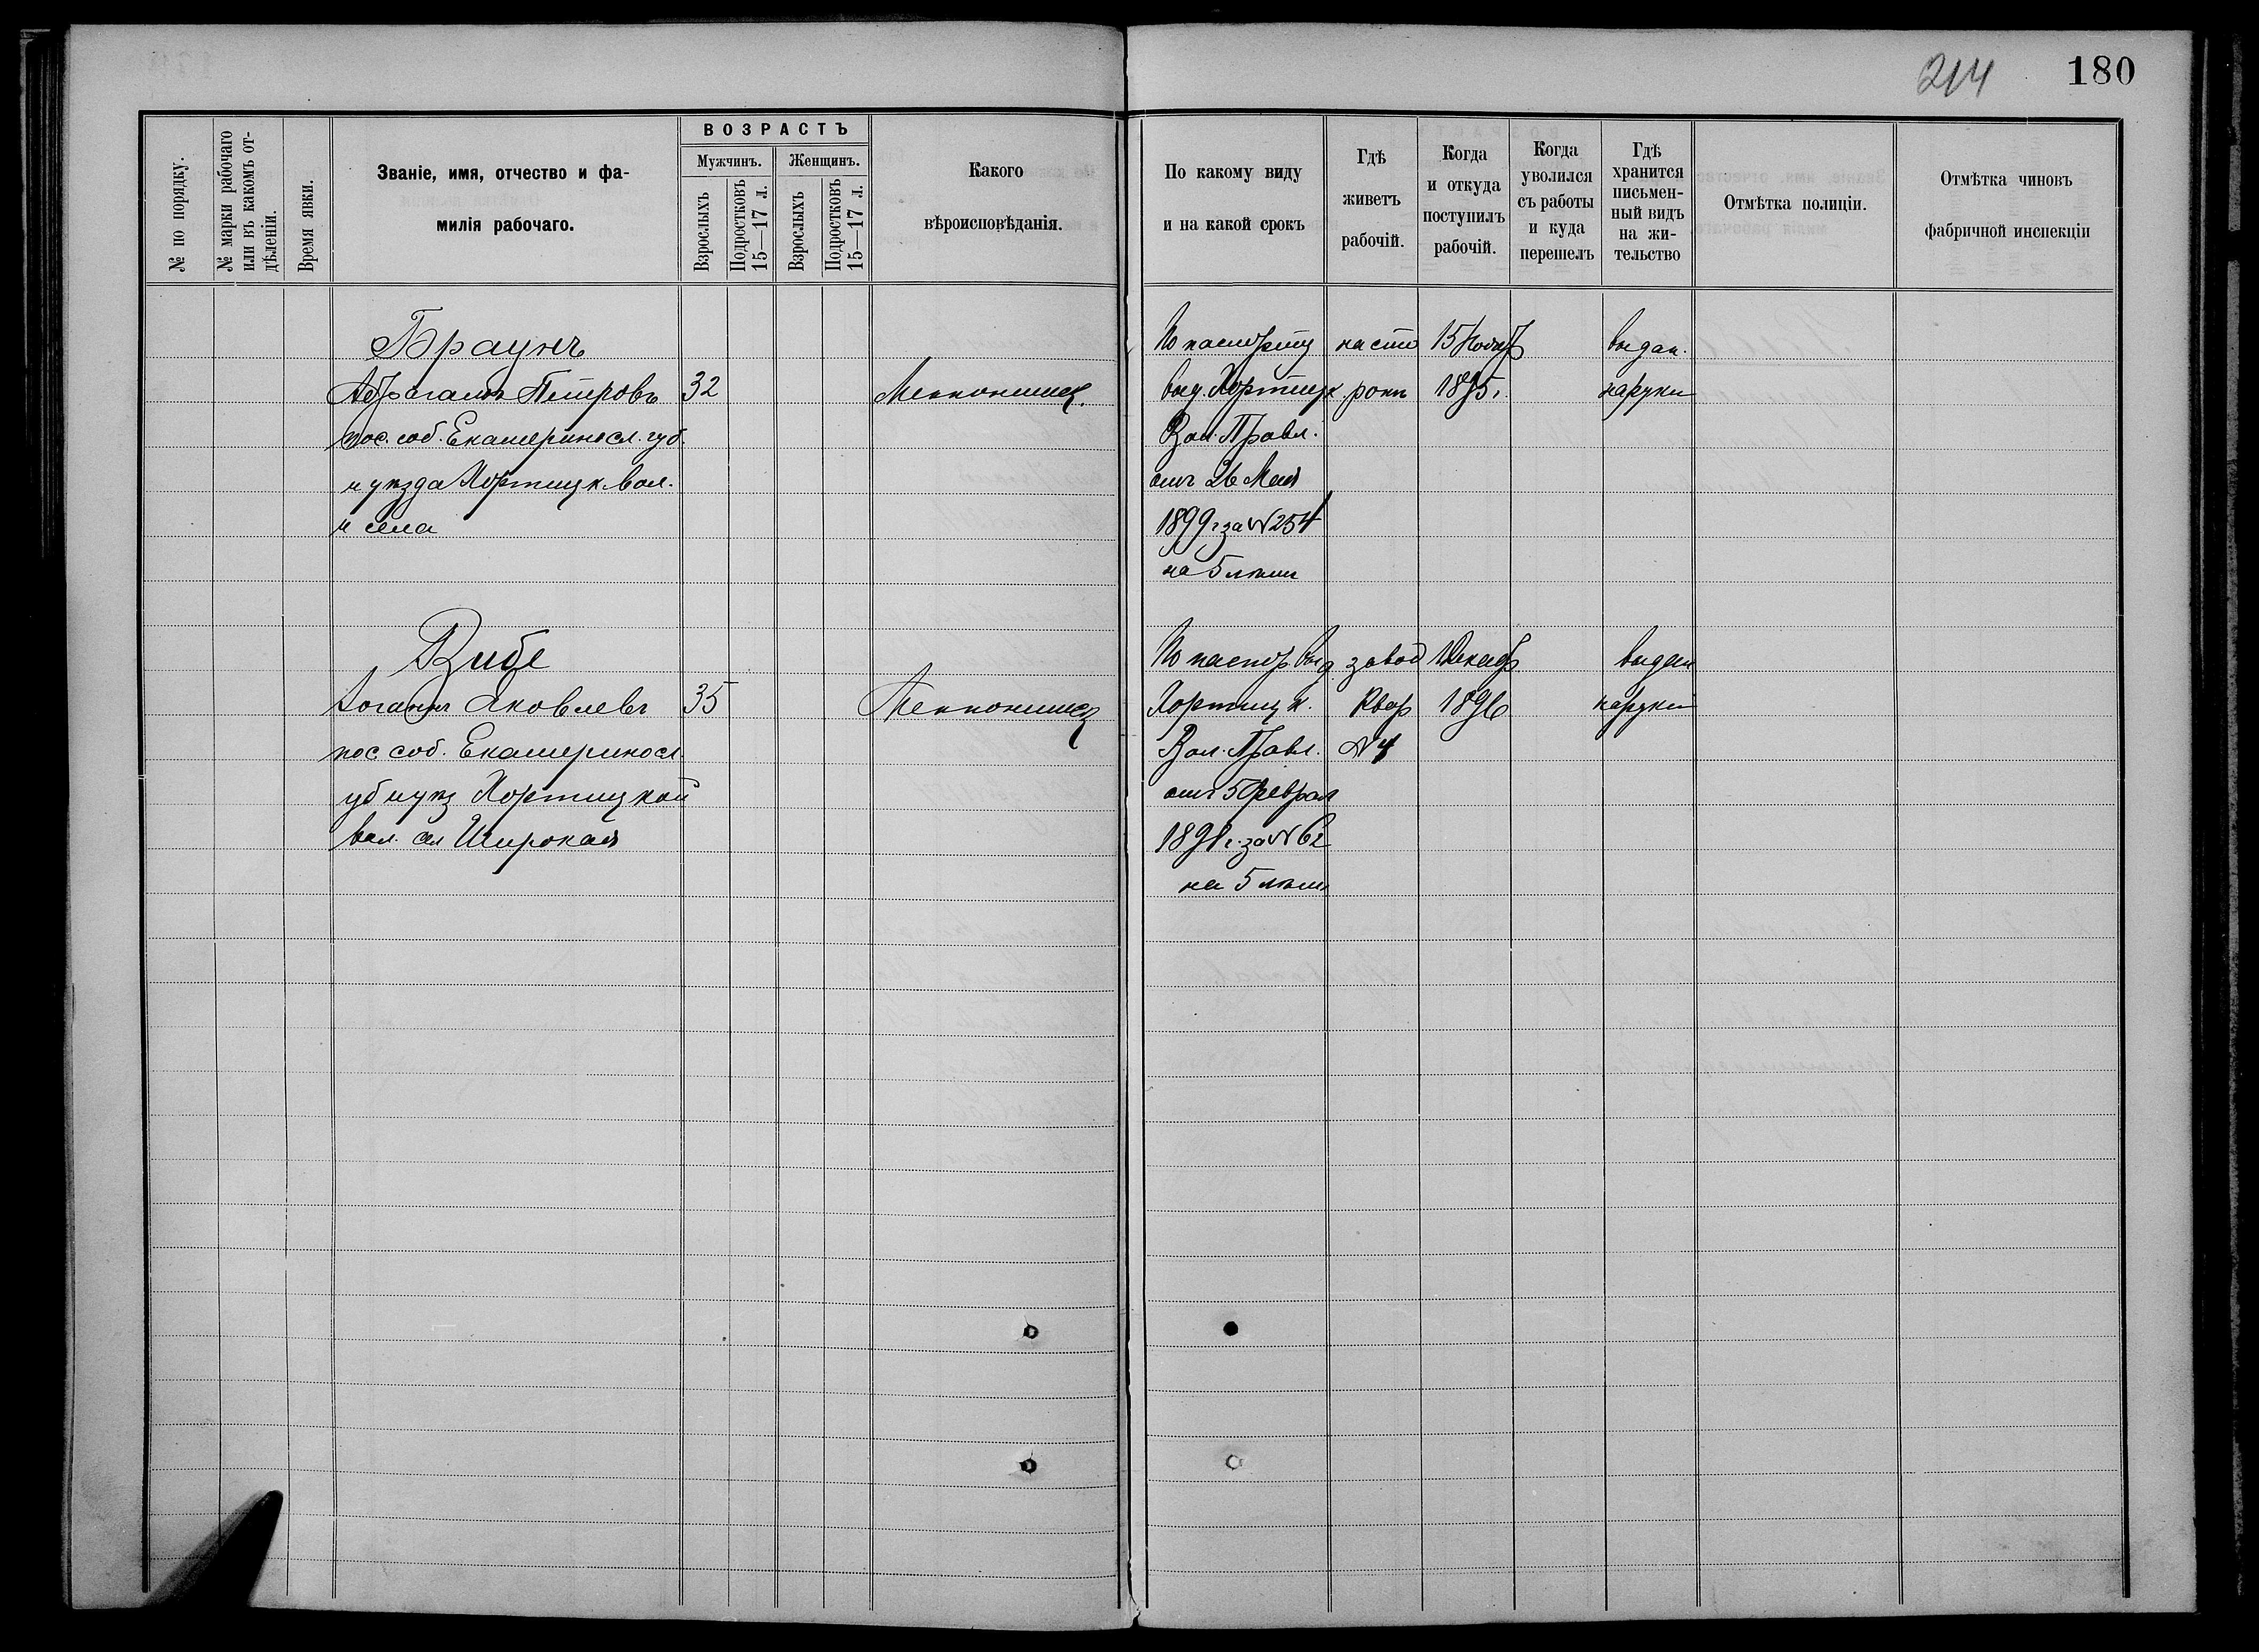 214 180
№ по порядку.
№ марки рабочаго
или въ какомъ от-
дѣленіи.
Время явки.
Званіе, имя, отчество и фа-
милія рабочаго.
ВОЗРАСТЪ
Мужчинъ.
Женщинъ.
Взрослыхъ
Подростковъ
15—17 л.
Взрослыхъ
Подростковъ
15—17 л.
Какого
вѣроисповѣданія.
По какому виду
и на какой срокъ
Гдѣ
живетъ
рабочій.
Когда
и откуда
поступилъ
рабочій.
Когда
уволился
съ работы
и куда
перешелъ
Гдѣ
хранится
письмен-
ный видъ
на жи-
тельство
Отмѣтка полиціи.
Отмѣтка чиновъ
фабричной инспекціи
Браунъ
Абрагамъ Петровъ
пос. соб. Екатериносл. губ.
и уѣзда Хортицк. вол.
и села
32
Меннонитск.
По паспорту
выд. Хортицк
Вол. Правл.
отъ 26 Мая
1899 г за № 254
на 5 лѣтъ
15 Нояб
1895 г
выдан.
на руки
Вибе
Іоганъ Яковлевъ
пос соб. Екатериносл
губ и уѣз Хортицкой
вол. сел Широкая
35
Меннонитск
По паспор выд
Хортицк.
Вол. Правл.
отъ 5 Феврал
1898 г. за № 62
на 5 лѣтъ
завод
Квар
№ 4
1 Декаб
1896
выдан
на руки